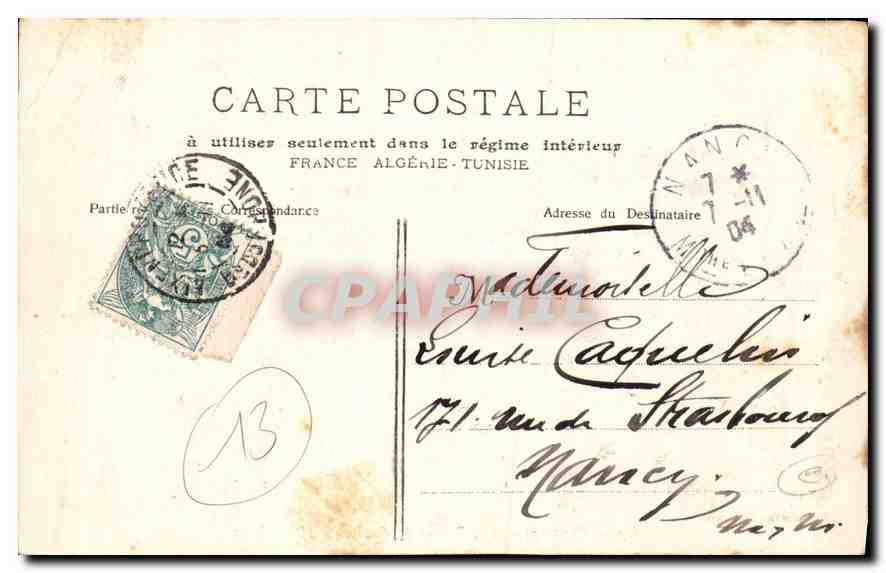 CARTE POSTALE
à utiliser seulement dans le régime intérieur
FRANCE ALGÉRIE - TUNISIE
Partie Correspondance
Adresse du Destinataire
NANCY
7 *
7 -11
04
5
CPAPHIL
Mademoiselle
Louise Caquelin
171. rue de Strasbourg
Nancy.
M-&-M.
13